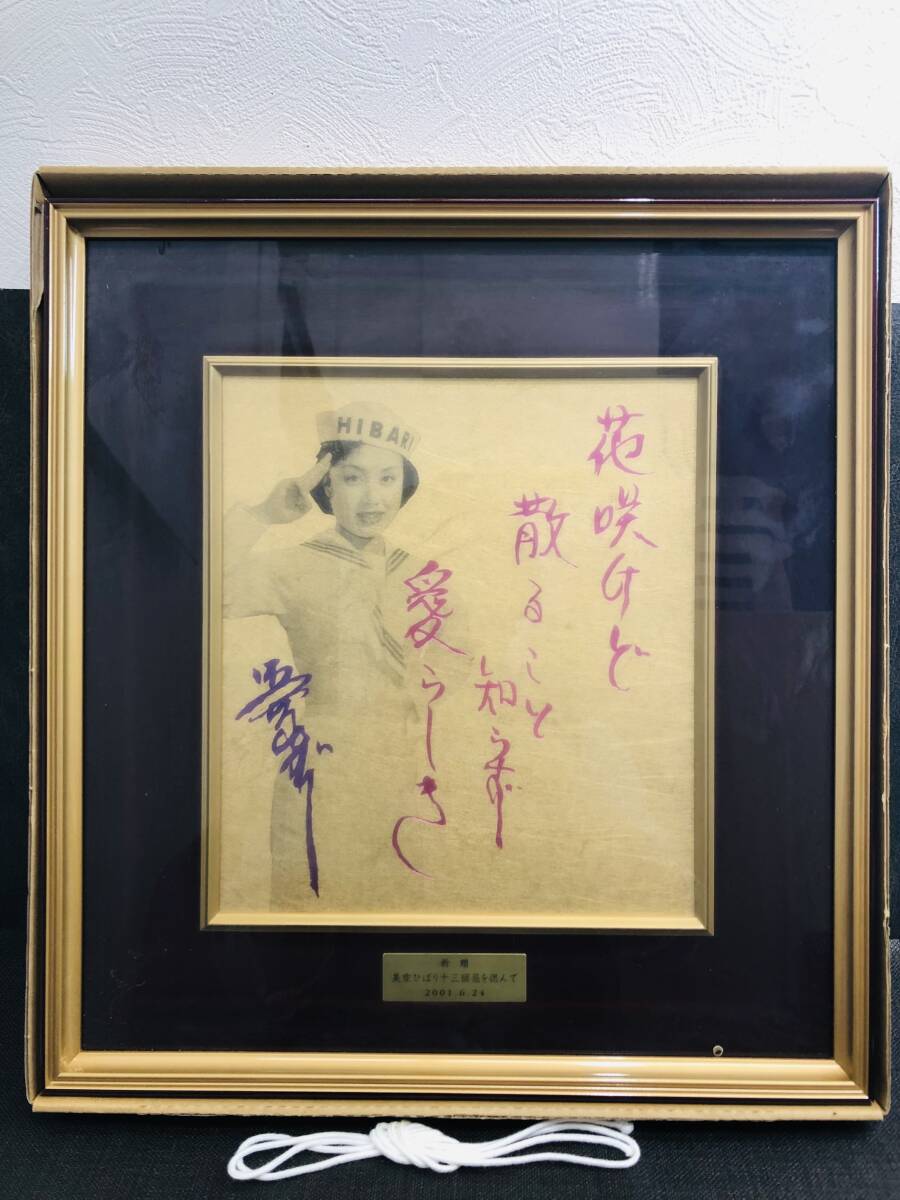 HIBARI
花咲けど
散ること
知らず
愛らしき
粉雪
美空ひばり十三回忌を偲んで
2001.6.24